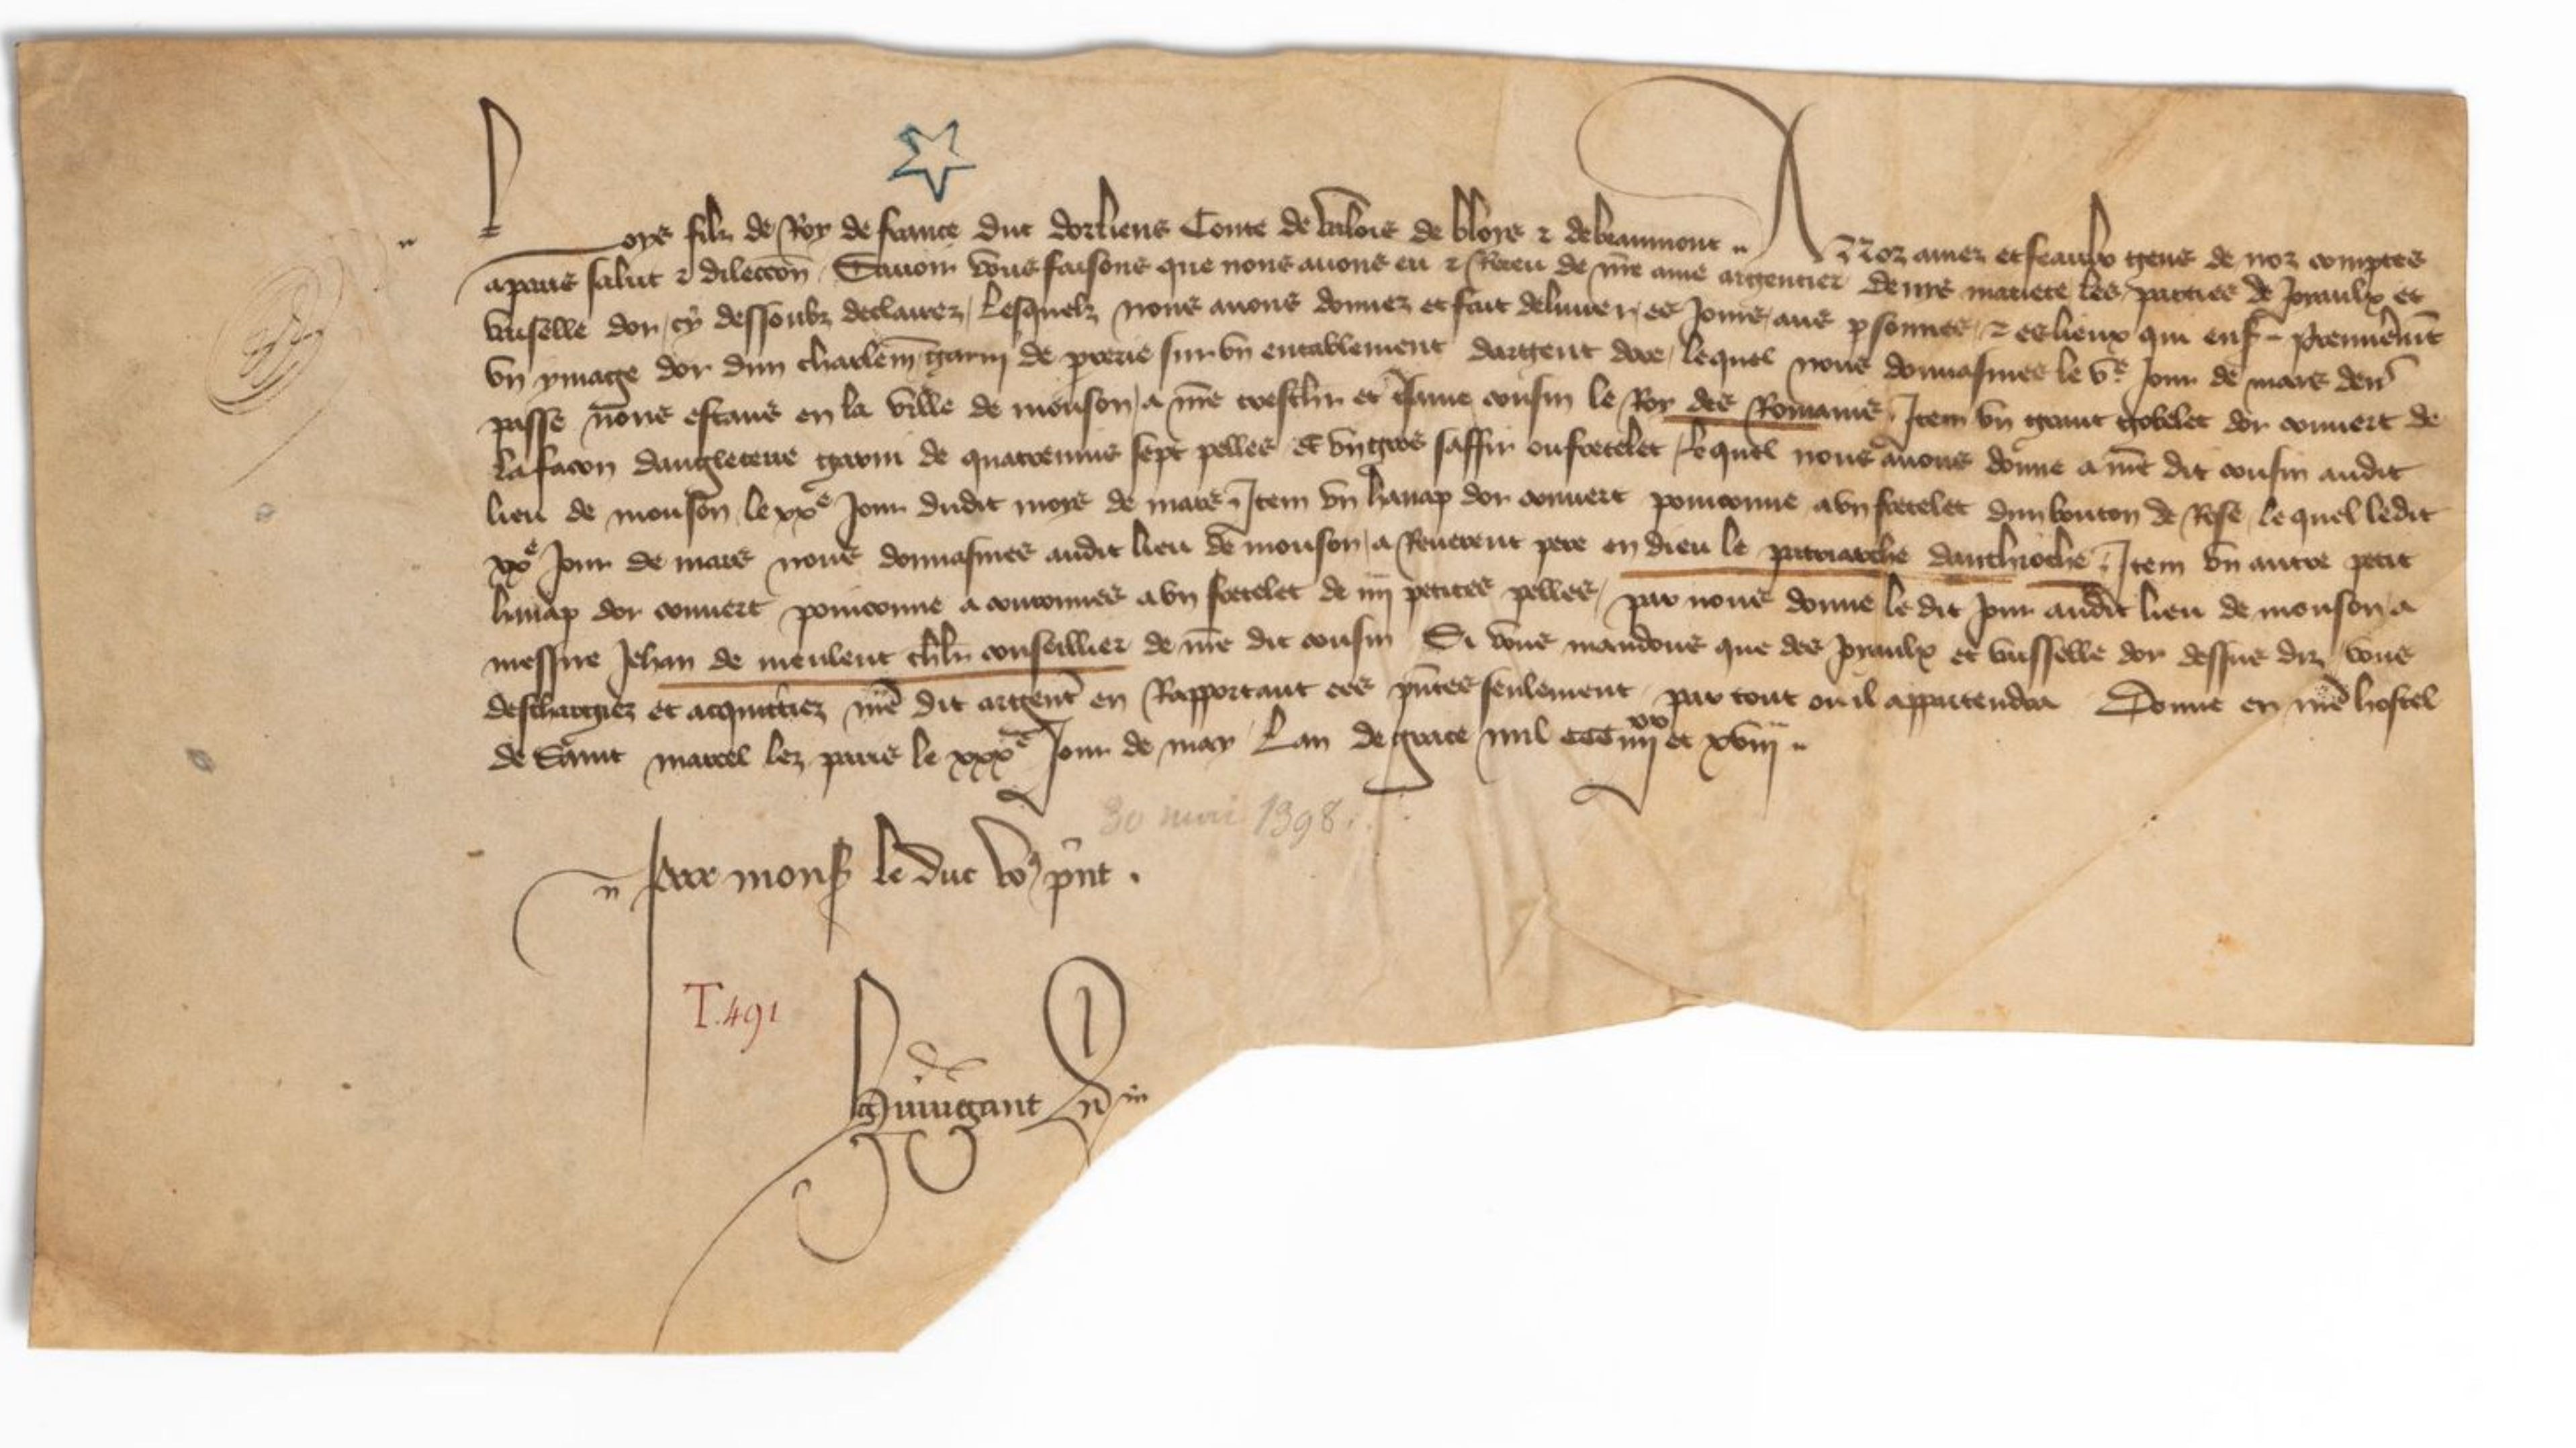 Loys filz de Roy de france duc dorliens Conte de valois de bloys & de beaumont A Noz amez et feaulx gens de noz comptes
a paris salut & dileccōn Sauoir vous faisons que nous auons eu & Receu de nr̄e ame argentier les parties de Joyaulx et
vaisselle dor cy dessoubz declairez Lesquelz nous auons donnez et fait deliurer es Jours aus psonnes & es lieux qui ens̄
vn ymage dor dun charlem̄ garni de prerie sur vn entablement dargent dore lequel nous donnasmes le vᵉ Jour de mars den̄
passe nous estans en la ville de mouson a nr̄e treschr et ame cousin le Roy des Romains Item vn grant gobelet dor couuert de
la facon dangleterre garni de quatreuins sept pelles et vn gros saffir ou fretelet lequel nous auons donne a nr̄e dit cousin audit
lieu de mouson le xxᵉ Jour dudit moys de mars Item vn hanap dor couuert poinconne a vn fretelet dun bouton de Rose lequel ledit
xxᵉ Jour de mars nous donnasmes audit lieu de mouson a Reuerent pere en dieu le patriarche danthioche Item vn autre petit
hanap dor couuert poinconne a couronnes a vn fretelet de iiij petites pelles par nous donne le dit Jour audit lieu de mouson a
messire Jehan de meulent chl̄r conseillier de nr̄e dit cousin Si vous mandons que des Joyaulx et vaisselle dor dessus diz vous
deschargiez et acquittiez nr̄e dit argent̄ en Rapportant ces pn̄tes seulement par tout ou il appartendra Donne en nr̄e hostel
de Saint marcel lez paris le xxxᵉ Jour de may Lan de grace mil ccc iiijˣˣ et xviij
30 mai 1398.
Par mons le duc vō pn̄t.
T.491